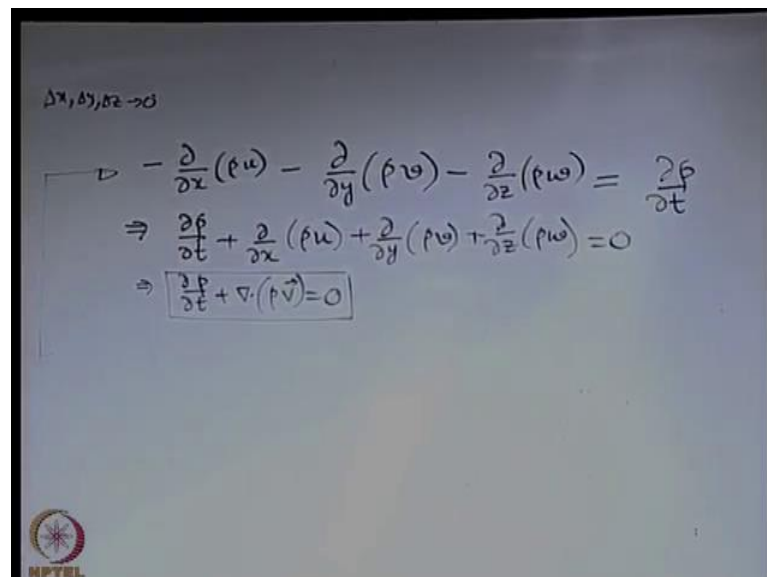 Δx, Δy, Δz → 0
- ∂/∂x (ρu) - ∂/∂y (ρv) - ∂/∂z (ρw) = ∂ρ/∂t
⇒ ∂ρ/∂t + ∂/∂x (ρu) + ∂/∂y (ρv) + ∂/∂z (ρw) = 0
⇒ ∂ρ/∂t + ∇·(ρV⃗) = 0
NPTEL